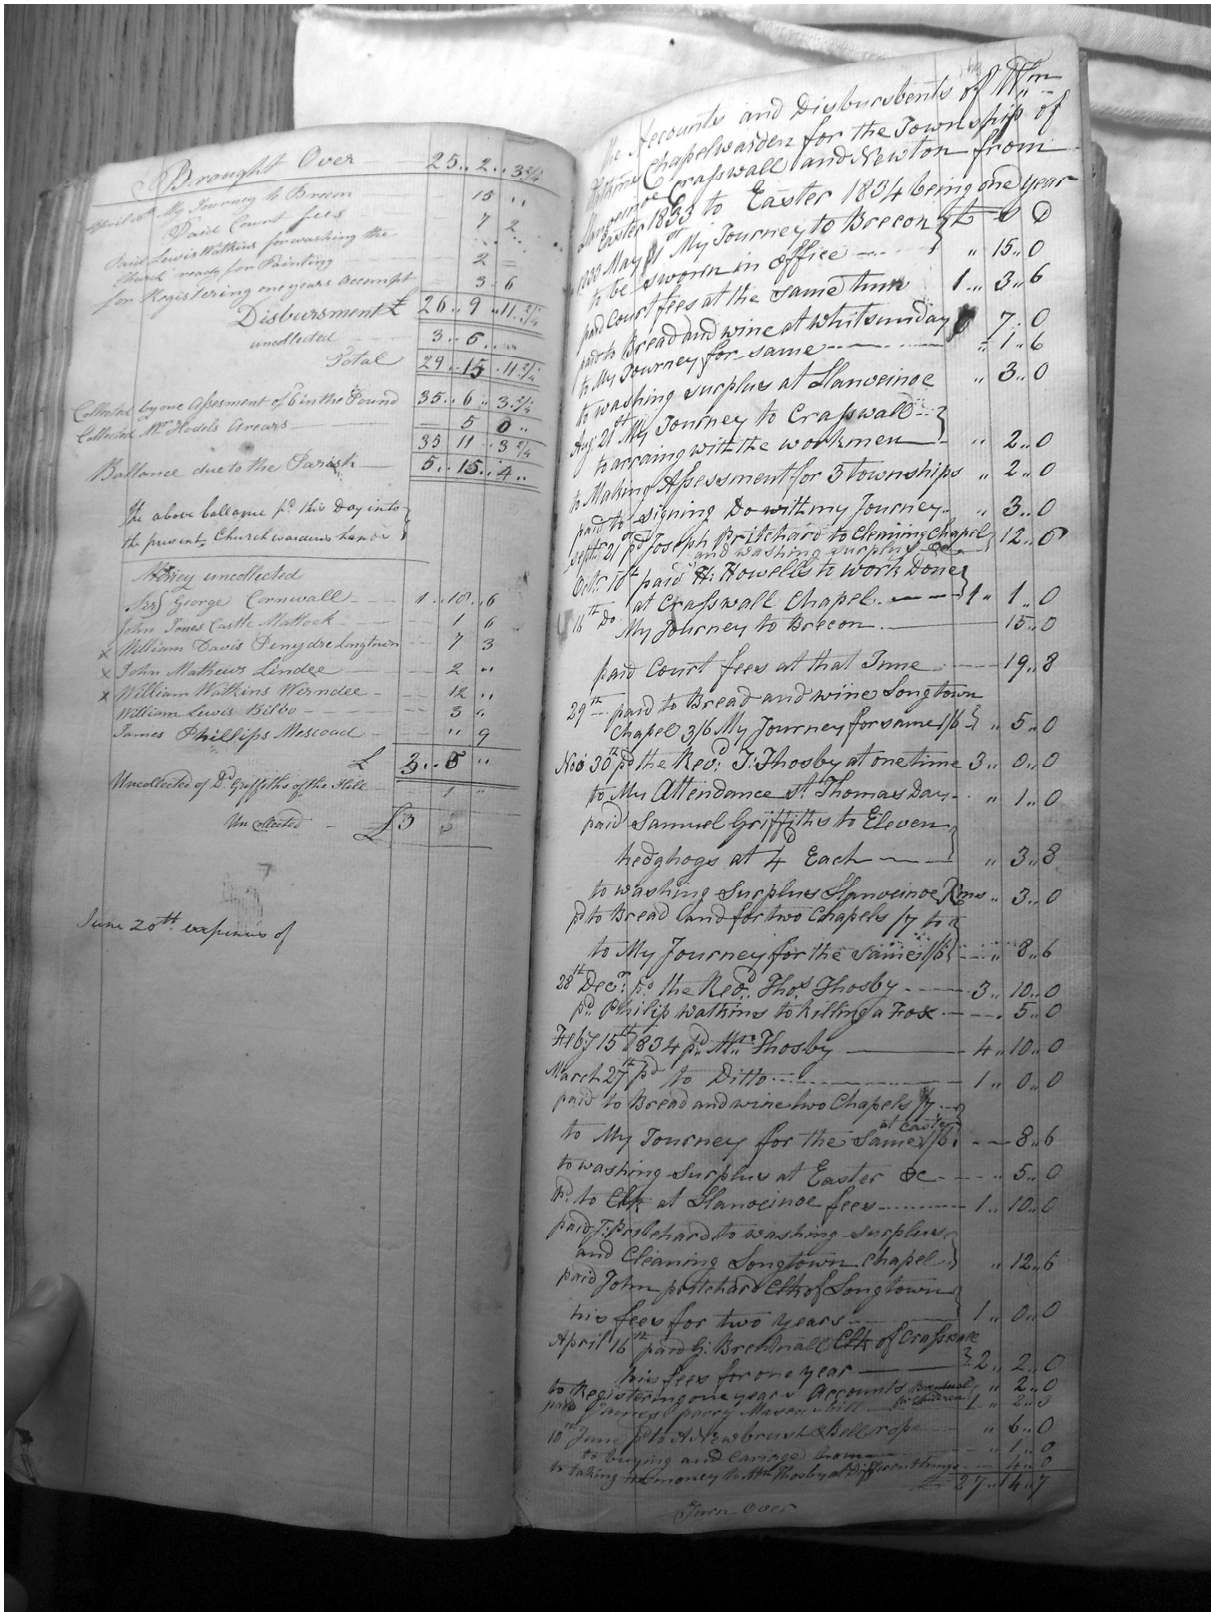 Brought Over 25 .. 2 .. 3 3/4
April My Journey to Brecon 15 "
Paid Court fees 7 2
Paid Lewis Watkins for washing the
Church ready for Painting 2 =
for Registering one years accompt 3 .. 6
Disbursment £ 26 .. 9 .. 11 3/4
uncollected 3 .. 6 ..
Total 29 .. 15 .. 11 3/4
Collected by one Assesment of 6 in the Pound 35 .. 6 .. 3 3/4
Collected Mr Hodels Arears 5 0 ..
35 11 .. 3 3/4
Ballance due to the Parish 5 .. 15 .. 4 ..
The above ballance pd this Day into
the present Church wardens hands
Money uncollected
George Cornwall 1 .. 10 .. 6
John Jones Castle Mattock 1 6
x William Davis Penydre Longtown 7 3
x John Mathews Lindee 2 "
x William Watkins Werndee 12 "
William Lewis Bilbo 3 "
James Phillips Mescoad " 9
£ 3 .. 6 "
Uncollected of Dd Griffiths of the Hill 1 "
Uncollected £3 5
June 20th expences of
The Accounts and Disbursbents of Wm
Watkins Chapelwarden for the Township of
Llanveinoe Crasswall and Newton from
Easter 1833 to Easter 1834 being one year
1833 May 1st My Journey to Brecon } £ S D
to be sworn in office " 15 .. 0
paid Court fees at the same time 1 .. 3 .. 6
paid to Bread and wine at whitsunday 7 .. 0
to My Journey for same " 1 .. 6
to washing surplus at Llanveinoe " 3 .. 0
Augt 21st My Journey to Crasswall
to arraing with the workmen " 2 .. 0
to Making Assessment for 3 townships " 2 .. 0
paid to signing Do with my Journey " 3 .. 0
septr 21st pd Joseph Pritchard to Cleaning chapel } 12 .. 6
and washing surplus
Octr 10th paid H: Howells to work Done }
at Crasswall Chapel 1 " 1 .. 0
16th Do My Journey to Brecon 15 .. 0
paid Court fees at that Time 19 .. 8
29th paid to Bread and wine Longtown
Chapel 3/6 My Journey for same 1/6 } " 5 .. 0
Nov 30th pd the Revd: T: Thosby at one time 3 .. 0 .. 0
to My Attendance St Thomas Day " 1 .. 0
paid Samuel Griffiths to Eleven }
hedghogs at 4d Each " 3 .. 8
to washing Surplus Llanveinoe Xms " 3 .. 0
pd to Bread and for two Chapels /7
to My Journey for the same 1/6 } " 8 .. 6
28th Decr: pd the Revd. Thos Thosby 3 .. 10 .. 0
pd Philip Watkins to killing a Fox 5 .. 0
Feby 15th 1834 pd Mr Thosby 4 .. 10 .. 0
March 27th pd to Ditto 1 .. 0 .. 0
paid to Bread and wine two Chapels /7 }
at Easter
to My Journey for the same 1/6 8 .. 6
to washing surplus at Easter &c 5 .. 0
Pd. to Clk at Llanveinoe fees 1 .. 10 .. 0
paid J: Pritchard to washing surplus }
and Cleaning Longtown chapel } " 12 .. 6
paid John pritchard Clk of Longtown }
his fees for two years 1 .. 0 .. 0
April 16th paid G: Brentnall Clk of Crasswall
his fees for one year } 2 .. 2 .. 0
to Registering one years Accounts " 2 .. 0
paid James Parry Mason bill 1 " 2 .. 3
10th June pd to A New brush & Bell rope " 6 .. 0
to buying and Cariage home " 1 .. 0
to taking the money to Mr Thosby at Different times 4 .. 0
£ 27 .. 14 .. 7
Turn Over